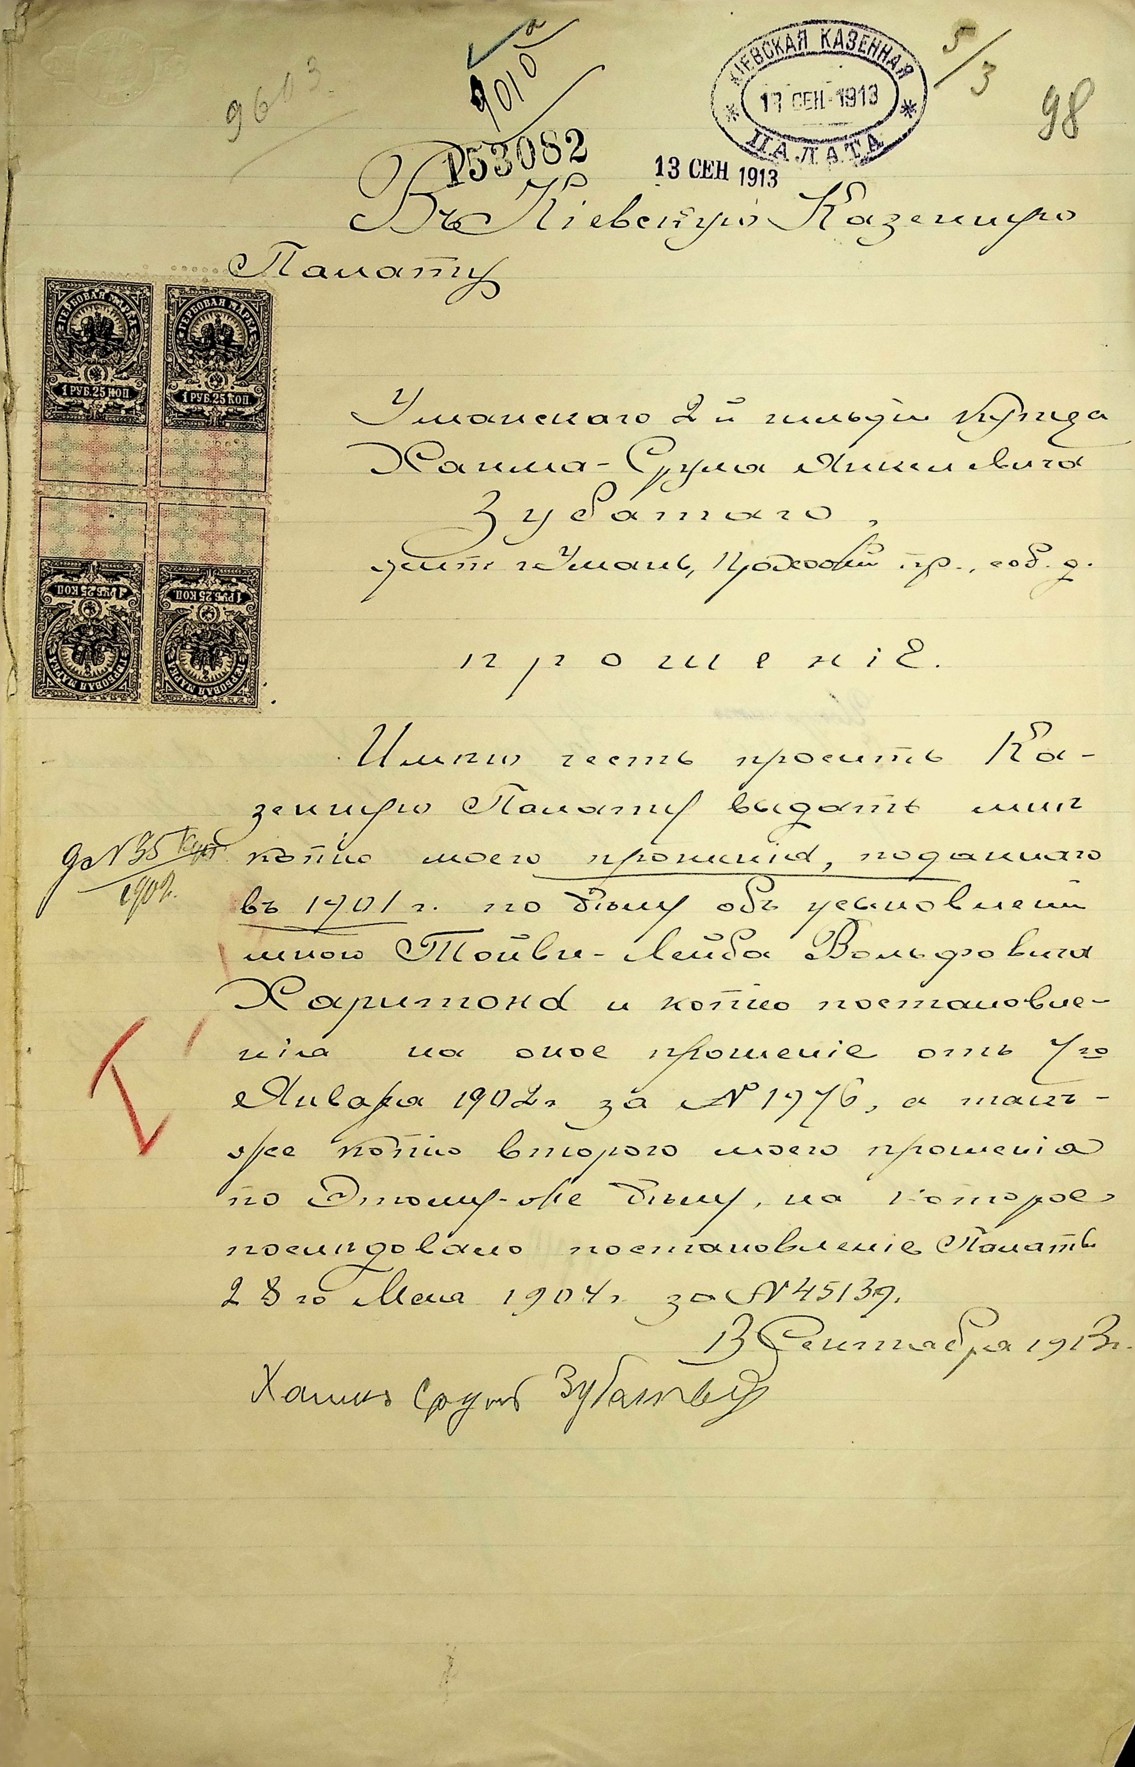 9613
9010
153082
КІЕВСКАЯ КАЗЕННАЯ
13 СЕН 1913
ПАЛАТА
13 СЕН 1913
5/3
98
Въ Кіевскую Казенную
Палату
ГЕРБОВАЯ МАРКА
ГЕРБОВАЯ МАРКА
1 РУБ. 25 КОП.
1 РУБ. 25 КОП.
1 РУБ. 25 КОП
1 РУБ. 25 КОП
ГЕРБОВАЯ МАРКА
ГЕРБОВАЯ МАРКА
Уманскаго 2й гильдіи купца
Хаима-Срула Янкелевича
Зубатаго,
жит. г. Умань, Проход. пр., соб. д.
прошеніе.
Имѣю честь просить Ка-
зенную Палату выдать мнѣ
копію моего прошенія, поданнаго
въ 1901 г. по дѣлу объ усыновленіи
мною Тойви-Лейба Вольфовича
Харитона и копію постановле-
нія на оное прошеніе отъ 7го
Января 1902 г. за № 1976, а такъ-
же копію второго моего прошенія
по этому-же дѣлу, на которое
послѣдовало постановленіе Палаты
28го Мая 1904 г. за № 45139.
13 Сентября 1913 г.
Хаимъ Срулъ Зубатый
д. № 35
1902.